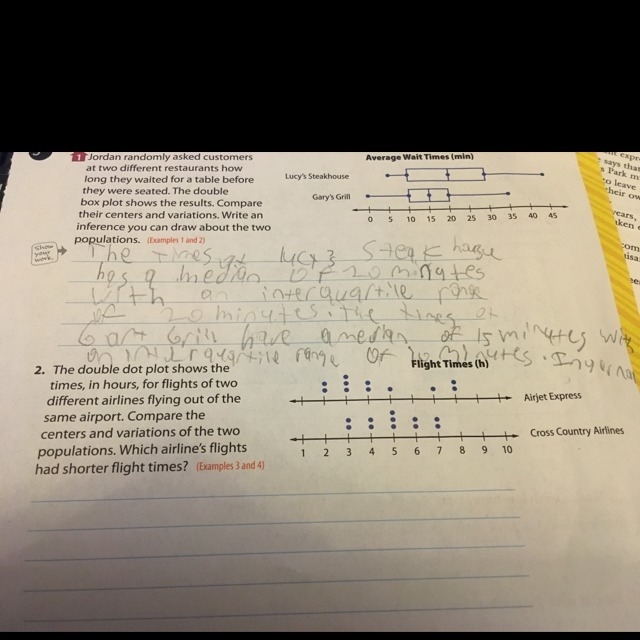 1 Jordan randomly asked customers
at two different restaurants how
long they waited for a table before
they were seated. The double
box plot shows the results. Compare
their centers and variations. Write an
inference you can draw about the two
populations. (Examples 1 and 2)
Average Wait Times (min)
Lucy's Steakhouse
Gary's Grill
0 5 10 15 20 25 30 35 40 45
Show your work.
The times at lucys Steak house
has a median of 20 minutes
with an interquartile range
of 20 minutes. the times of
Grill have a median of 15 minutes with
an interquartile range of 10 minutes.
2. The double dot plot shows the
times, in hours, for flights of two
different airlines flying out of the
same airport. Compare the
centers and variations of the two
populations. Which airline's flights
had shorter flight times? (Examples 3 and 4)
Flight Times (h)
Airjet Express
Cross Country Airlines
1 2 3 4 5 6 7 8 9 10
says that
s Park
to leave
their
years,